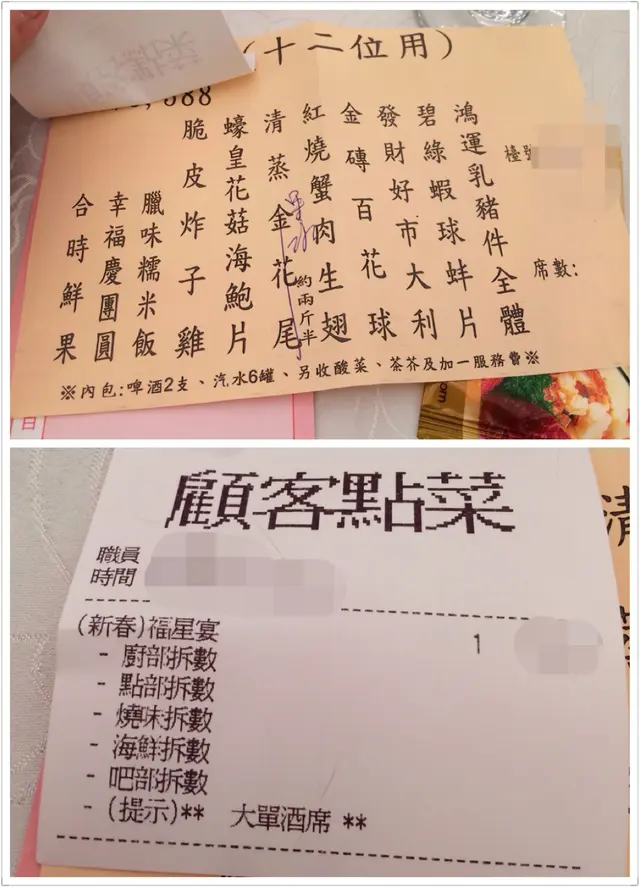 (十二位用)
檯
席數:
鴻運乳豬件全體
碧綠蝦球蚌片
發財好市大利
金磚百花球
紅燒蟹肉生翅
清蒸金花尾
約兩斤半
蠔皇花菇海鮑片
脆皮炸子雞
臘味糯米飯
幸福慶團圓
合時鮮果
※內包:啤酒2支、汽水6罐、另收酸菜、茶芥及加一服務費※
顧客點菜
職員
時間
(新春)福星宴 1
- 廚部拆數
- 點部拆數
- 燒味拆數
- 海鮮拆數
- 吧部拆數
- (提示)** 大單酒席 **